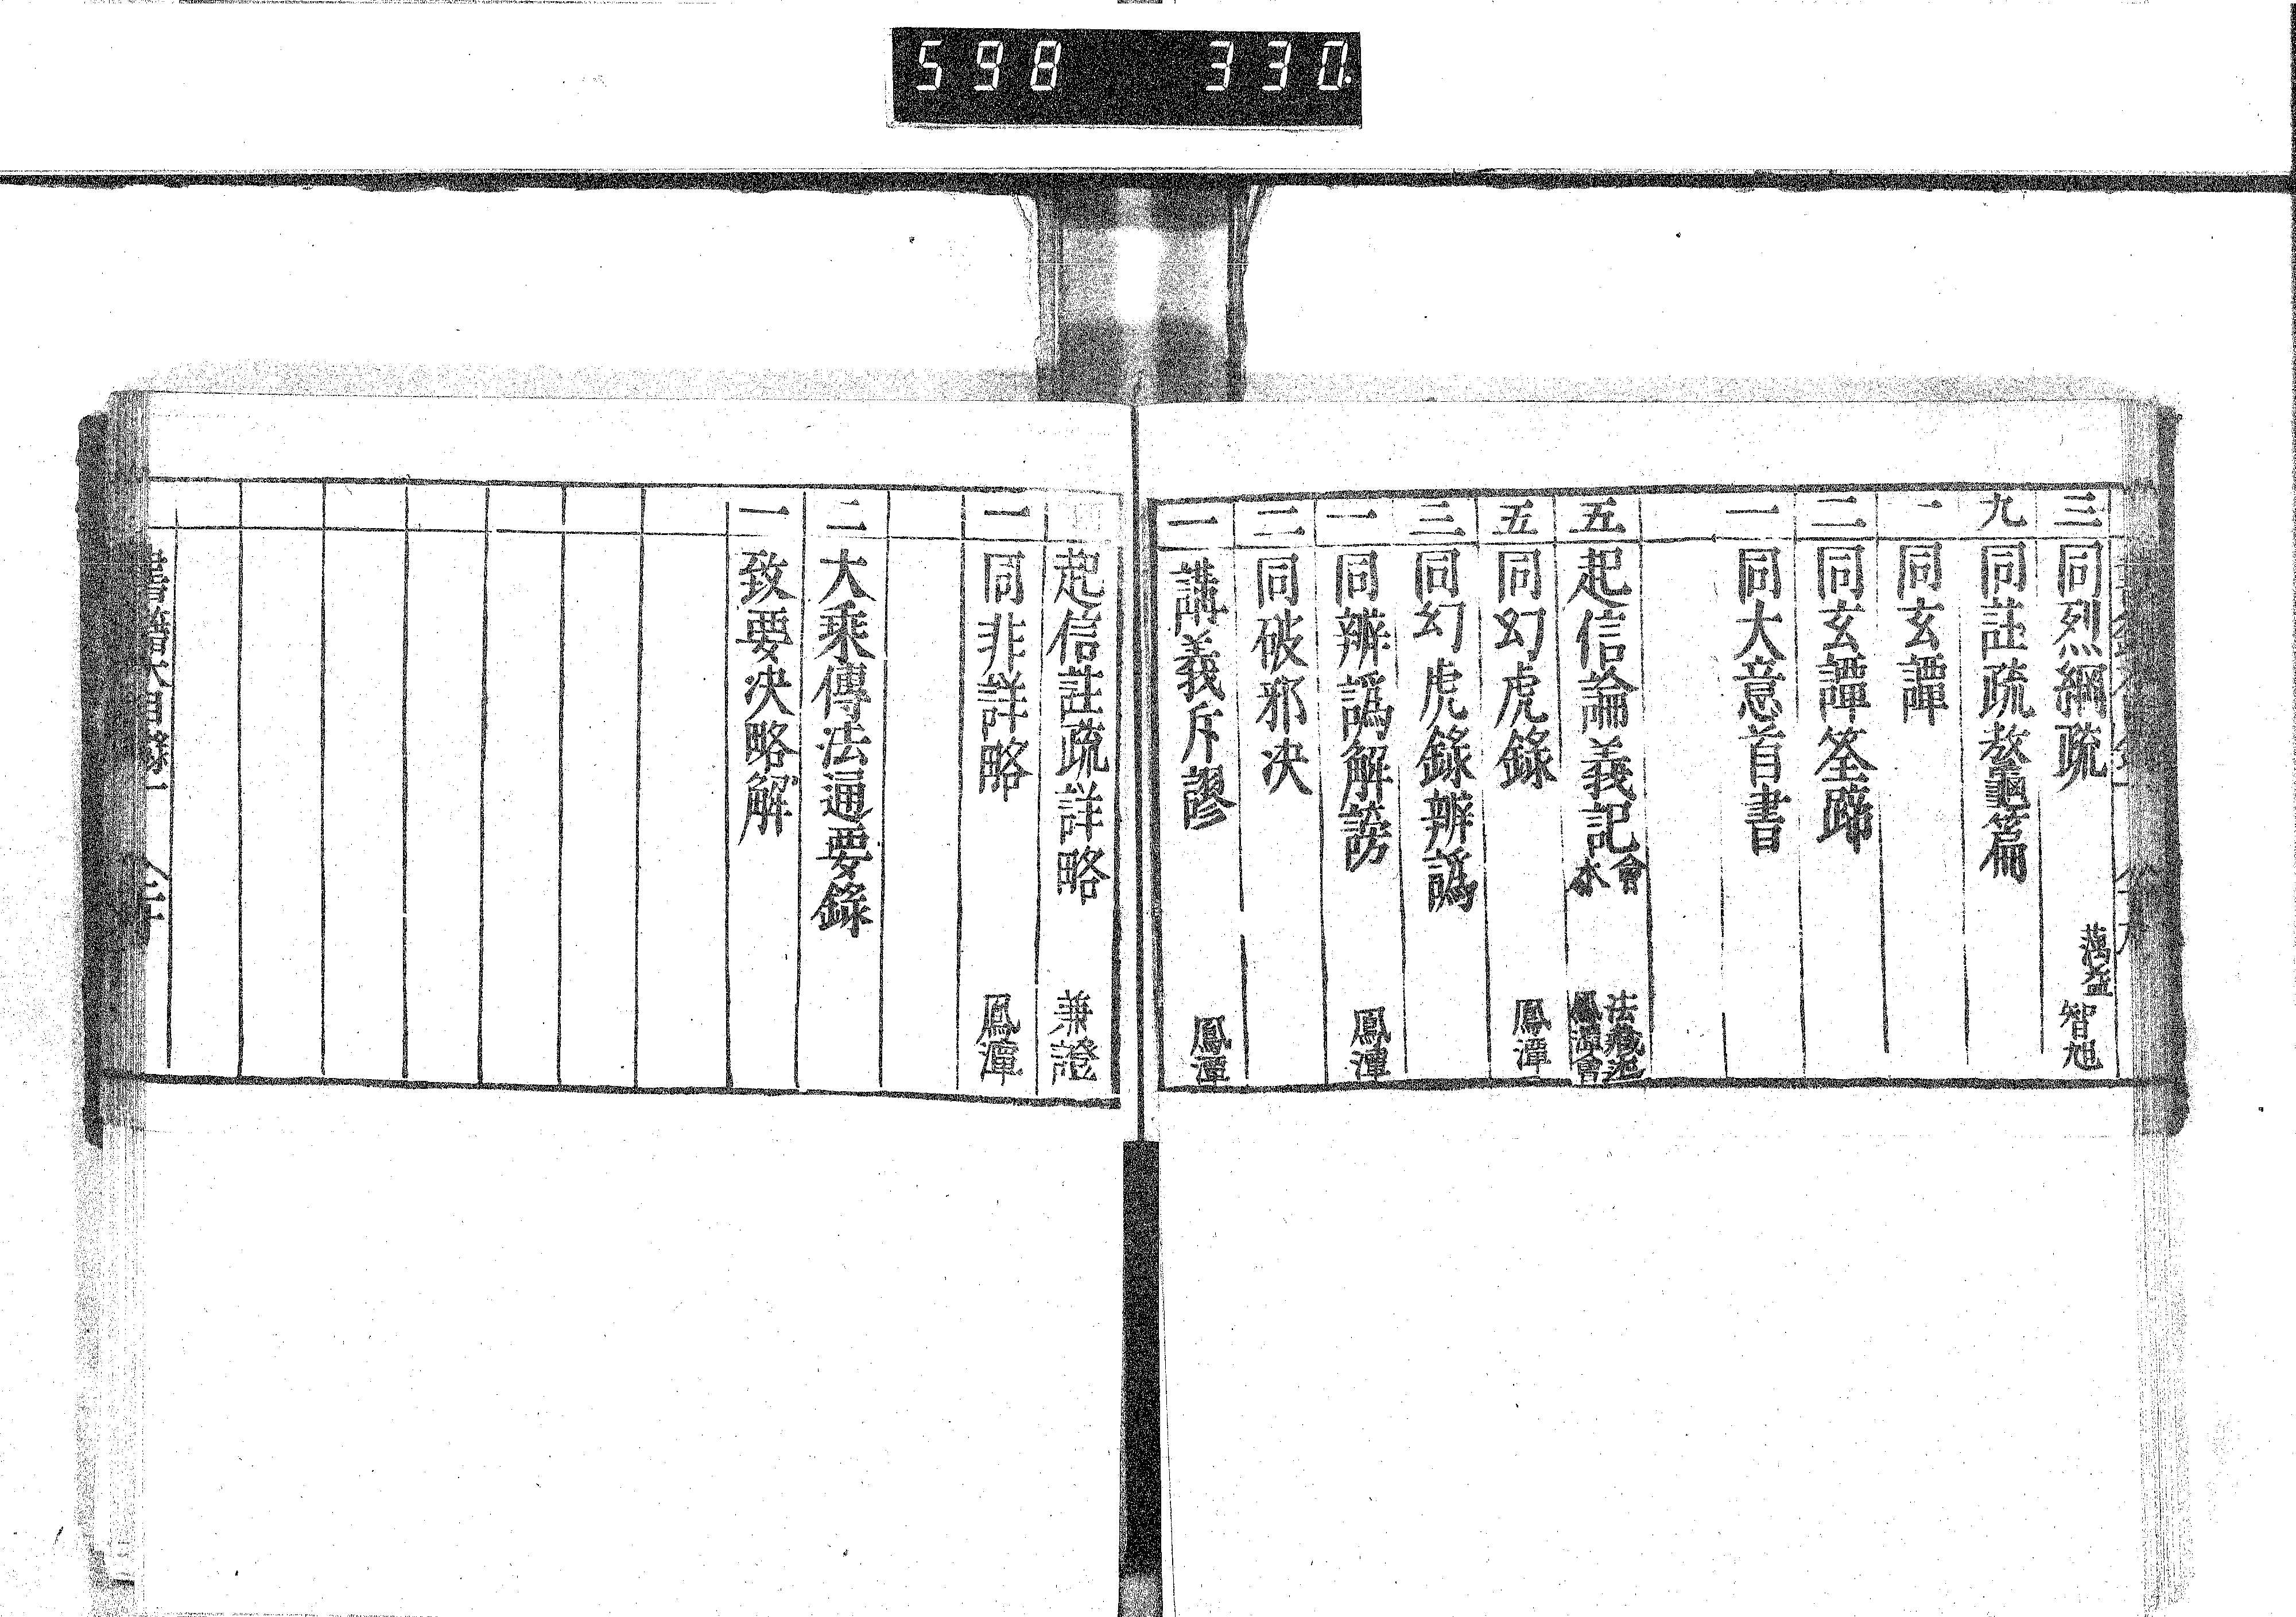 598 330
三 同烈網疏 蕅益智旭
九 同註疏敖龜篇
一 同玄譚
二 同玄譚筌蹄
一 同大意首書
五 起信論義記會本 法藏述 鳳潭會
五 同幻虎錄 鳳潭
三 同幻虎錄辨譌
一 同辨譌解謗 鳳潭
二 同破邪决
一 講義斥謬 鳳潭
起信註疏詳略 兼證
一 同非詳略 鳳潭
二 大乘傳法通要錄
一 致要决略解